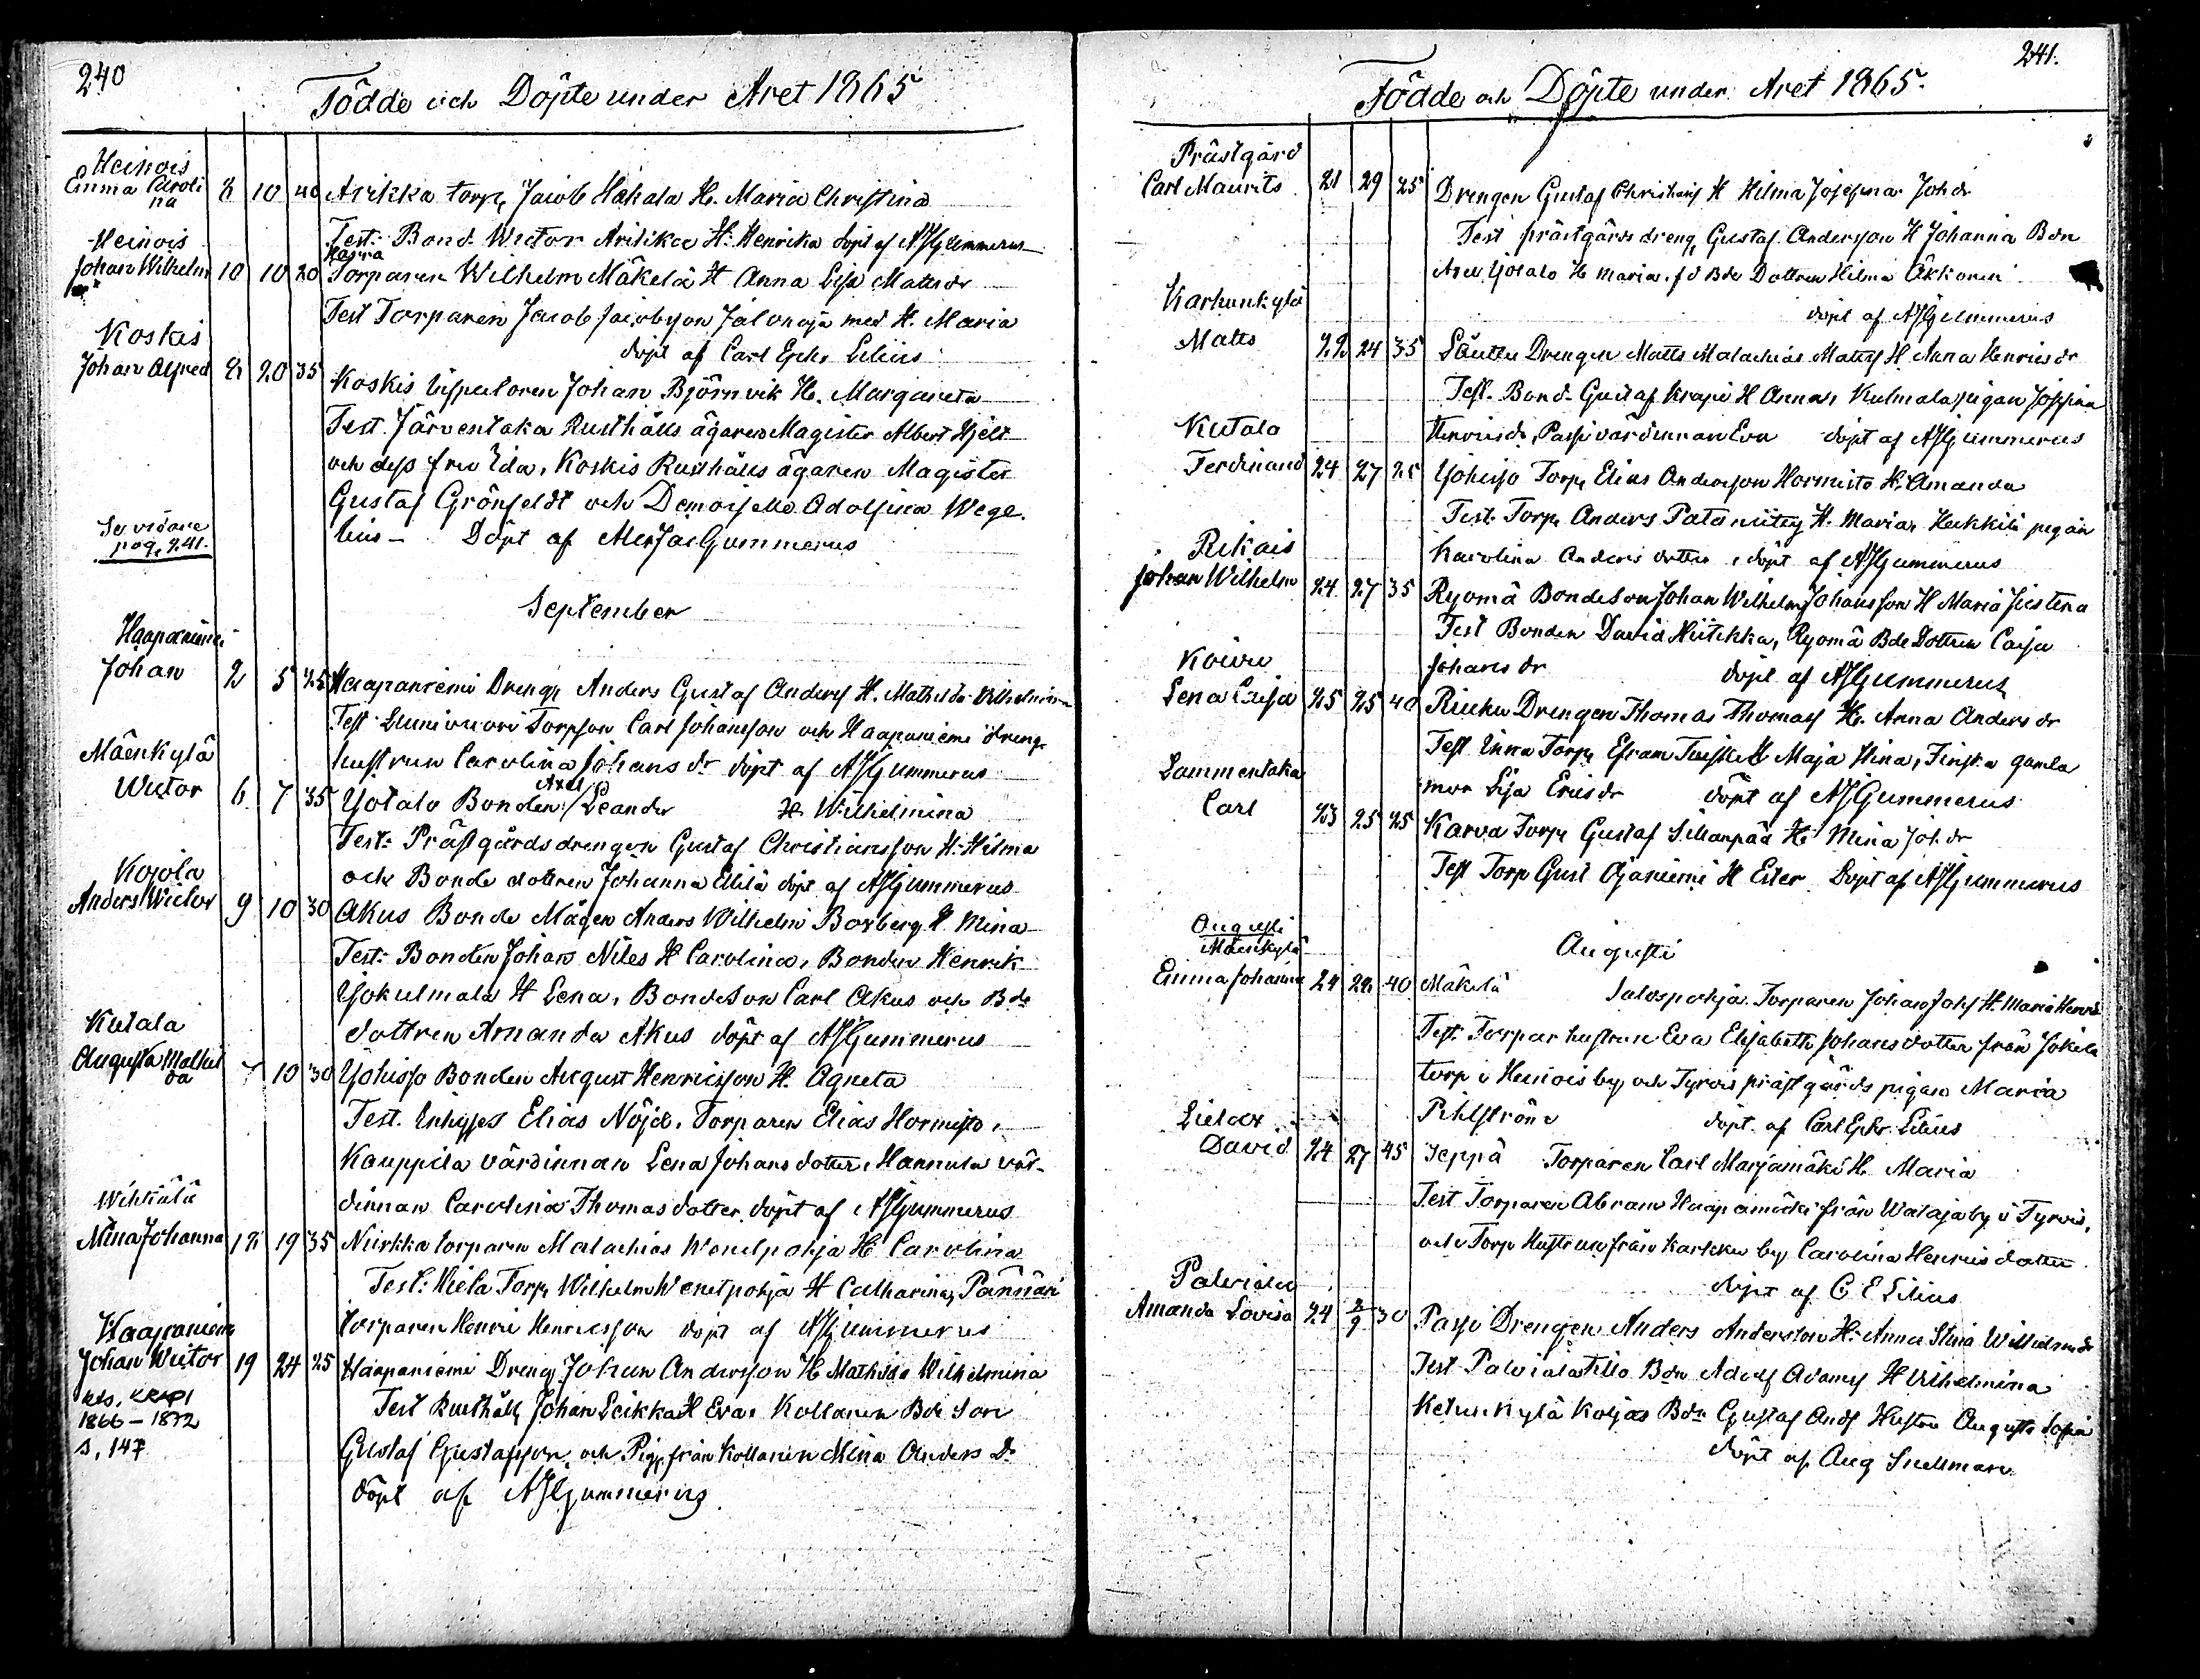 240
Födde och Döpte under Året 1865
Heinois
Emma Caroli
na
8 10 40 Arikka torp, Jacob Hakala H. Maria Christina
Test: Bond. Wictor Arikka H. Henrika döpt af AJGummerus
Heinois
Johan Wilhelm 10 10 20 Torparen Wilhelm Mäkelä H Anna Lisa Matts dr
Test Torparen Jacob Jacobsson Jalonoja med H. Maria
döpt af Carl Ephr Lilius
Koskis
Johan Alfred 8 20 35 Koskis Inspectoren Johan Björnvik H. Margareta
Test. Järventaka Rusthålls ägaren Magister Albert Hjelt
och dess fru Ida, Koskis Rusthålls ägaren Magister
Gustaf Grönfeldt och Demoiselle Adolfina Wege
lius – Döpt af AlexJac Gummerus
Se vidare
pag. 241.
September
Haapaniemi
Johan 2 5 25 Haapaniemi Dreng, Anders Gustaf Anderss H. Mathilda Vilhelmina
Test Torpson Carl Johansson och Haapaniemi dreng
hustrun Carolina Johans dr döpt af AJGummerus
Mäenkylä
Wictor 6 7 35 Yotalo Bonden Axel Leander H Wilhelmina
Test: Prästgårds drengen Gustaf Christiansson H. Hilma
och Bonde dottren Johanna Ellilä döpt af AJGummerus
Kojola
Anders Wictor 9 10 30 Akus Bonde Mågen Anders Wilhelm Boxberg H Mina
Test: Bonden Johan Niles H Carolina, Bonden Henrik
Yokulmala H Lena, Bondeson Carl Akus och Bde
dottren Amanda Akus döpt af AJGummerus
Kutala
Augusta Mathil
da
7 10 30 Yohisso Bonden August Henricsson H. Agneta
Test. Inhyses Elias Nöjd, Torparen Elias Hormisto,
Kauppila värdinnan Lena Johans dotter, Hannula vär-
dinnan Carolina Thomas dotter döpt af AJGummerus
Wihkälä
Mina Johanna 18 19 35 Niirkka torparen Malachias Wenetpohja H Carolina
Test: Torp, Wilhelm Wenetpohja H Catharina, Pännäri
torparen Henric Henricsson döpt af AJGummerus
Haapaniemi
Johan Wictor 19 24 25 Haapaniemi Dreng Johan Andersson H Mathilda Wilhelmina
Test Rusthåll, Johan Leikka H Eva, Kollanen Bde son
Gustaf Gustafsson, och Pig, från Kollanen Mina Anders Dr
döpt af AJGummerus
kts. KRAPI
1866–1872
s. 147
241.
Födde och Döpte under Året 1865.
Prästgård
Carl Maurits 21 29 25 Drengen Gustaf Christians H Hilma Josefina Joh dr
Test prästgårds dreng, Gustaf Andersson H Johanna Bdn
Axel Yotalo H Maria, Bde Dottren Hilma Äkkönen
döpt af AJGummerus
Karhunkylä
Matts 22 24 35 Drengen Matts Malachias Mattss H. Anna Henrics dr
Test. Bond. Gustaf Krapi H Anna, Kulmala pigan Josefina
Henrics dr, värdinnan Eva döpt af AJGummerus
Kutala
Ferdinand 24 27 25 Yohisso Torp, Elias Andersson Hormisto H. Amanda
Test. Torp, Anders H. Maria, Heikkilä pigan
Karolina Anders dotter, döpt af AJGummerus
Rikais
Johan Wilhelm 24 27 35 Ryömä Bondeson Johan Wilhelm Johansson H Maria Justina
Test Bonden David Hiitikka, Ryömä Bde Dottren Caisa
Johans dr döpt af AJGummerus
Koivu
Lena Caisa 25 25 40 Drengen Thomas Thomass H. Anna Anders dr
Test Torp, Efram H Maja Stina, gamla
mor Lisa Erics dr döpt af AJGummerus
Lammentaka
Carl 23 25 25 Karva Torp, Gustaf Sillanpää H Mina Joh. dr
Test Torp Gust Ojaniemi H Ester Döpt af AJGummerus
Augusti
Augusti
Mäenkylä
Emma Johanna 24 28 40 Mäkelä Salospohja Torparen Johan Johss H. Maria Henrics
Test: Torpar hustrun Eva Elisabeth Johans dotter från Jokela
torp i Heinois by och Tyrvis prästgårds pigan Maria
Pihlström döpt af Carl Ephr. Lilius
Lielax
David 24 27 45 Seppä Torparen Carl Marjamäki H. Maria
Test Torparen Abram Haapamäki från Wataja by i Tyrvis,
och Torp Hustrun från Karkku by Carolina Henrics dotter
döpt af C E Lilius
Palviala
Amanda Lovisa 24 2/9 30 Passi Drengen Anders Andersson H. Anna Stina Wilhelms dr
Test Palviala Tillo Bdn Adolf Adamss H Vilhelmina
Ketunkylä Koljas Bdn Gustaf Andss Hustru Augusta Sofia
döpt af Aug Snellman